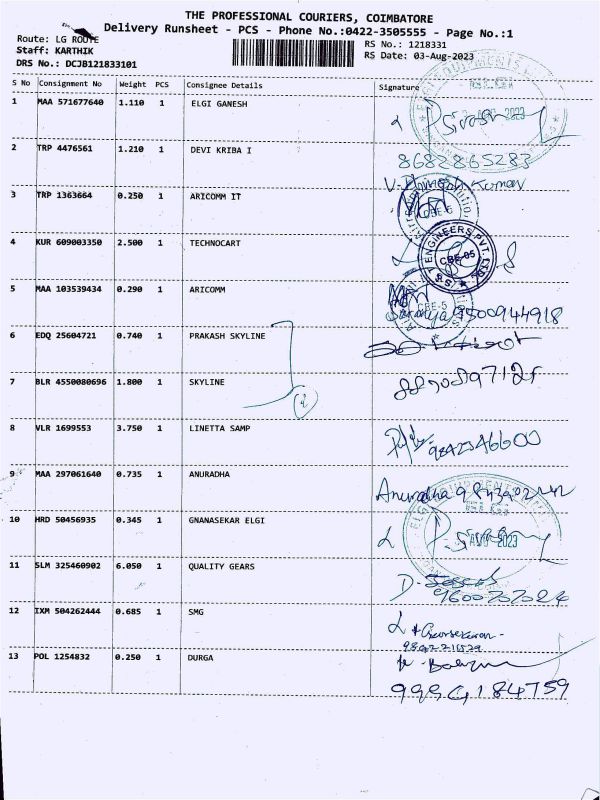 THE PROFESSIONAL COURIERS, COIMBATORE
Delivery Runsheet - PCS - Phone No.:0422-3505555 - Page No.:1
Route: LG ROUTE
RS No.: 1218331
Staff: KARTHIK
RS Date: 03-Aug-2023
DRS No.: DCJB121833101
S No Consignment No Weight PCS Consignee Details Signature
1 MAA 571677640 1.110 1 ELGI GANESH
2023
2 TRP 4476561 1.210 1 DEVI KRIBA I
8682865283
3 TRP 1363664 0.250 1 ARICOMM IT
4 KUR 609003350 2.500 1 TECHNOCART
ENGINEERS PVT. LTD
CBE-05
5 MAA 103539434 0.290 1 ARICOMM
CBE-5
9500944918
6 EDQ 25604721 0.740 1 PRAKASH SKYLINE
7 BLR 4550080696 1.800 1 SKYLINE
8 VLR 1699553 3.750 1 LINETTA SAMP
9842346600
9 MAA 297061640 0.735 1 ANURADHA
Anuradha
10 HRD 50456935 0.345 1 GNANASEKAR ELGI
2023
11 SLM 325460902 6.050 1 QUALITY GEARS
12 IXM 504262444 0.685 1 SMG
13 POL 1254832 0.250 1 DURGA
9994184759